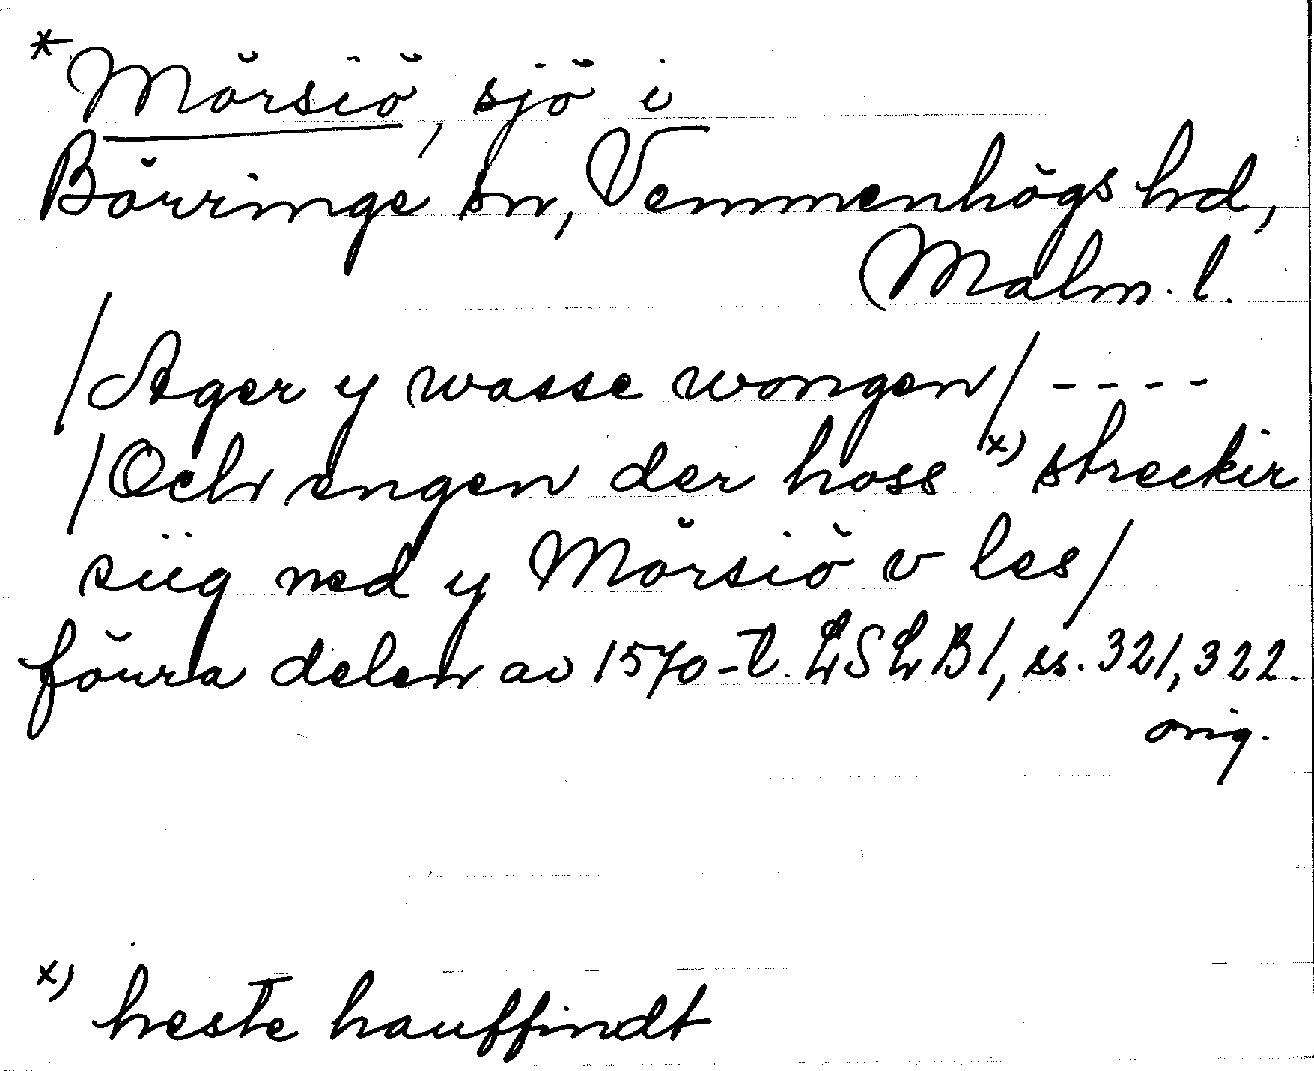 * Mörsiö, sjö i
Börringe sn, Vemmenhögs hd,
Malm. l.
/Ager y wasse wongen/ ----
/Och engen der hoss x) streckir
siig ned y Mörsiö v les/
förra delen av 1570-t. LSLB1, ss. 321, 322.
orig.
x) heste hauffindt